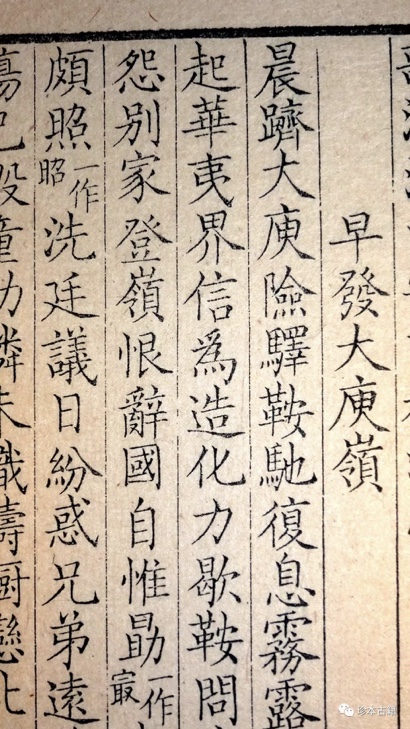 早發大庾嶺
晨躋大庾險驛鞍馳復息霧露
起華夷界信爲造化力歇鞍問
怨別家登嶺恨辭國自惟勗一作㝡
頗照一作昭洗廷議日紛惑兄弟遠
已毀童幼未識戀北
珍本古籍